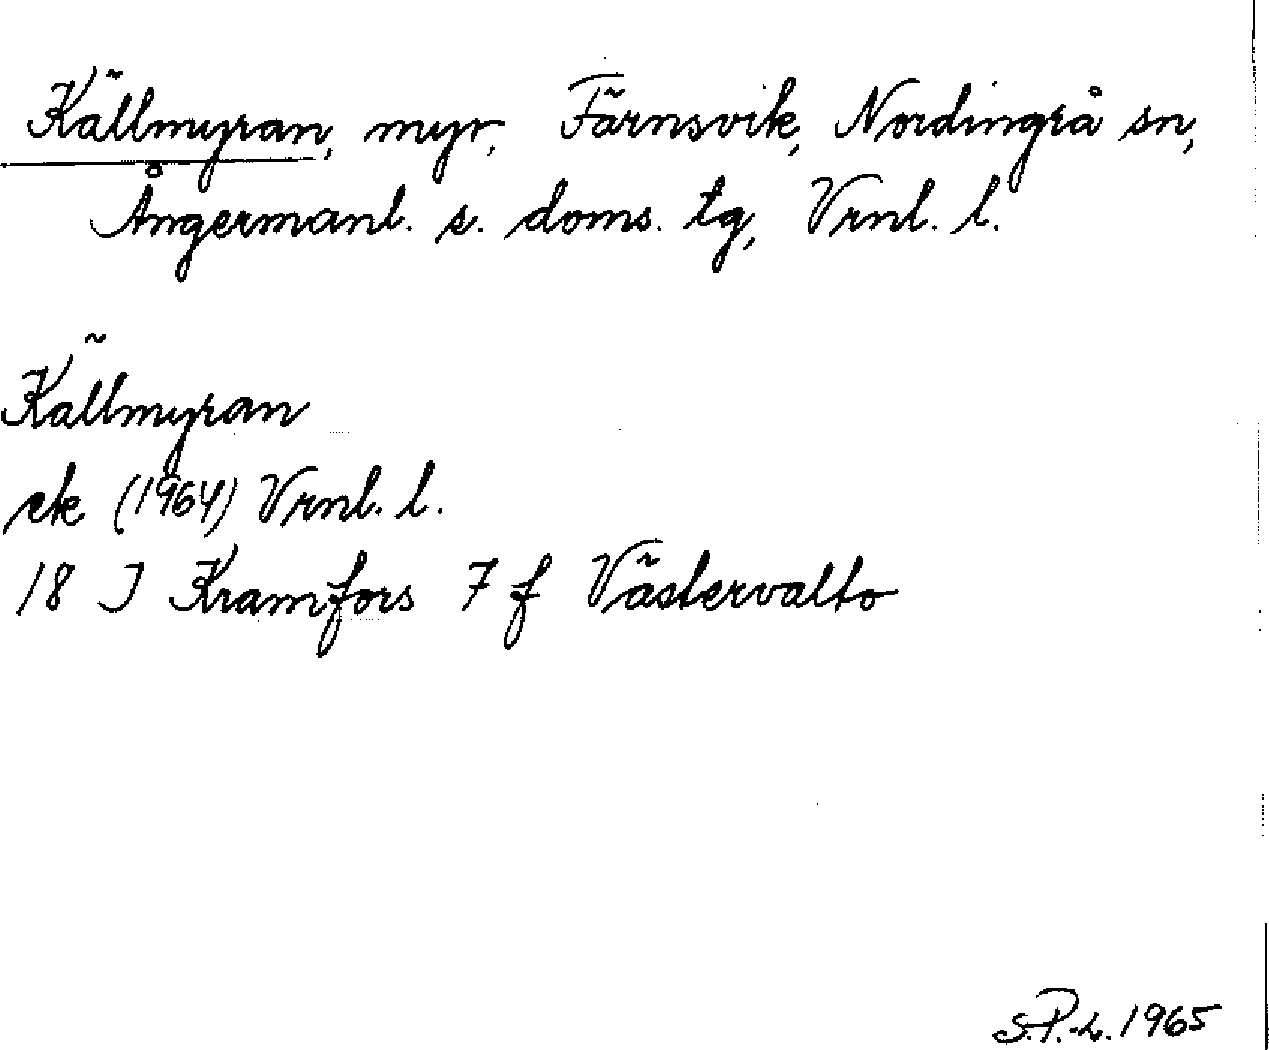 Källmyran, myr, Färnsvik, Nordingrå sn,
Ångermanl. s. doms. tg, Vrnl. l.
Källmyran
ek (1964) Vrnl. l.
18 I Kramfors 7 f Västervalto
S.P.-L. 1965